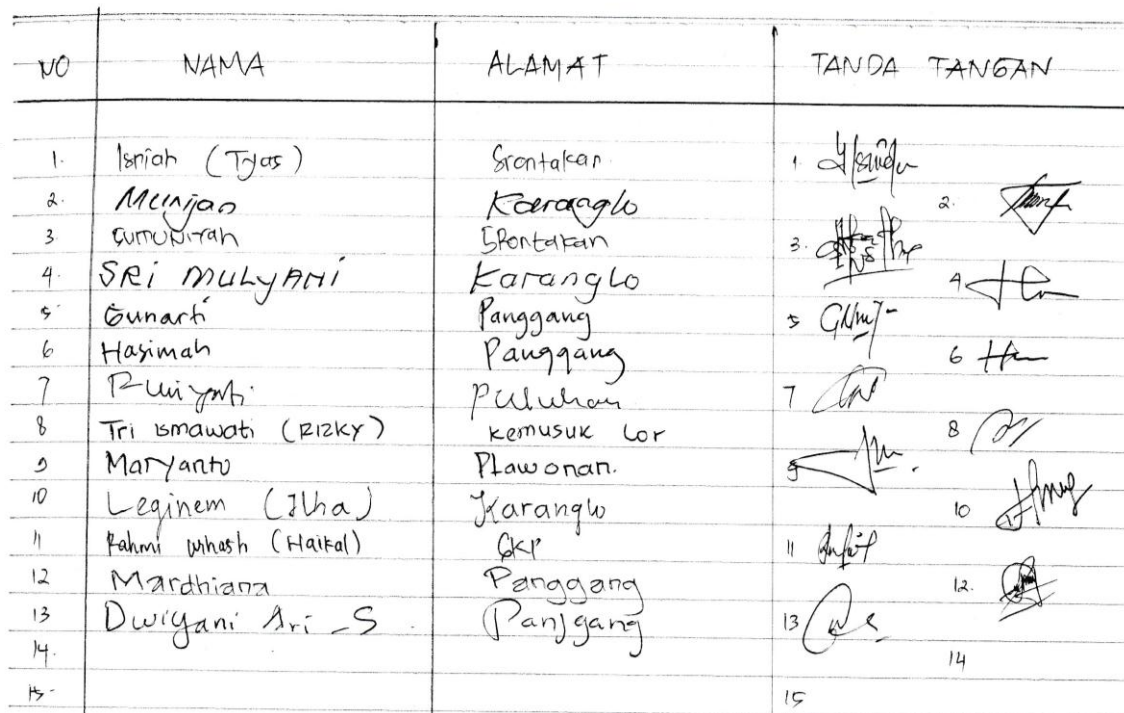 NO NAMA ALAMAT TANDA TANGAN
1. Isniah (Tyas) Srontakan 1.
2. Munijan Karanglo 2.
3. Srontakan 3.
4. SRI MULYANI Karanglo 4
5 Gunarti Panggang 5
6 Hasimah Panggang 6
7 Puluhan 7
8 Tri ismawati (RIZKY) Kemusuk Lor 8
9 Maryanto Plawonan. 9
10 Leginem (Ilha) Karanglo 10
11 Rahmi (Haikal) GKP 11
12 Mardhiana Panggang 12.
13 Dwiyani Ari _S Panggang 13
14. 14
15- 15